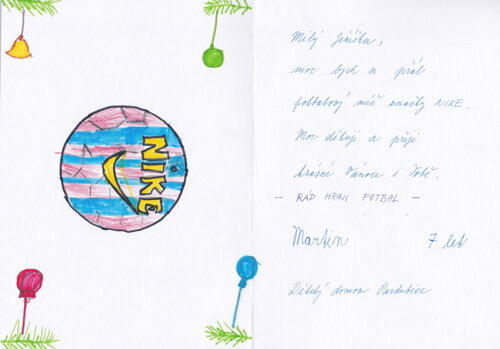 NIKE
Milý Ježíšku,
moc bych si přál
fotbalový míč značky NIKE.
Moc děkuji a přeji
krásné Vánoce i Tobě.
- RÁD HRAJI FOTBAL -
Martin 7 let
Dětský domov Pardubice